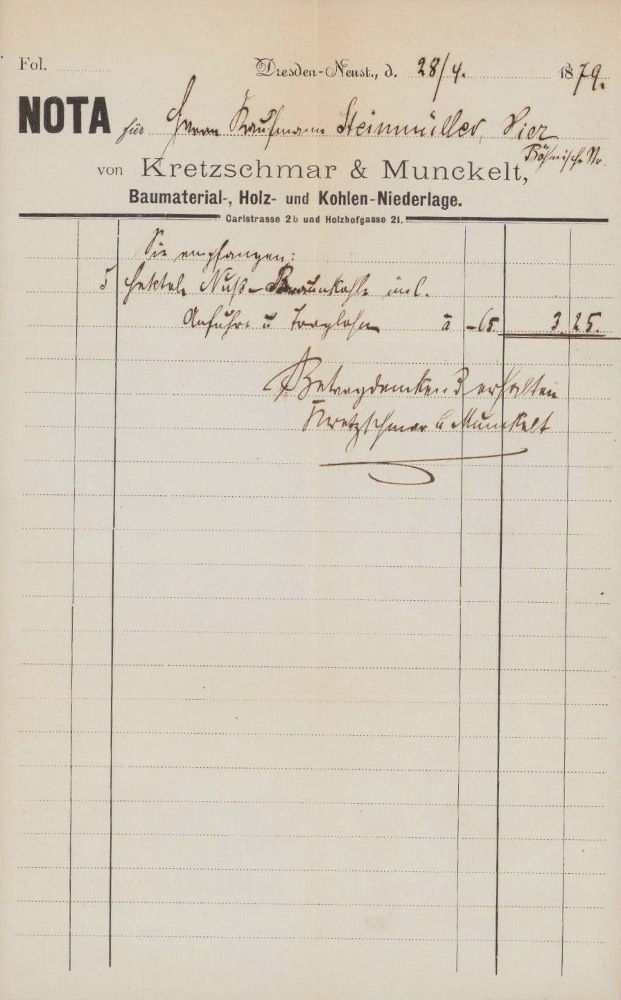 Fol.
Dresden-Neust., d. 28/4. 1879.
NOTA für Herrn Kaufmann Steinmüller, Hier
Böhmische Str.
von Kretzschmar & Munckelt,
Baumaterial-, Holz- und Kohlen-Niederlage.
Carlstrasse 2b und Holzhofgasse 21.
Sie empfangen:
5 Hektol. Nuß-Braunkohle incl.
Anfuhre u Traglohn à -65 3 25.
Betrag dankend erhalten
Kretzschmar & Munckelt